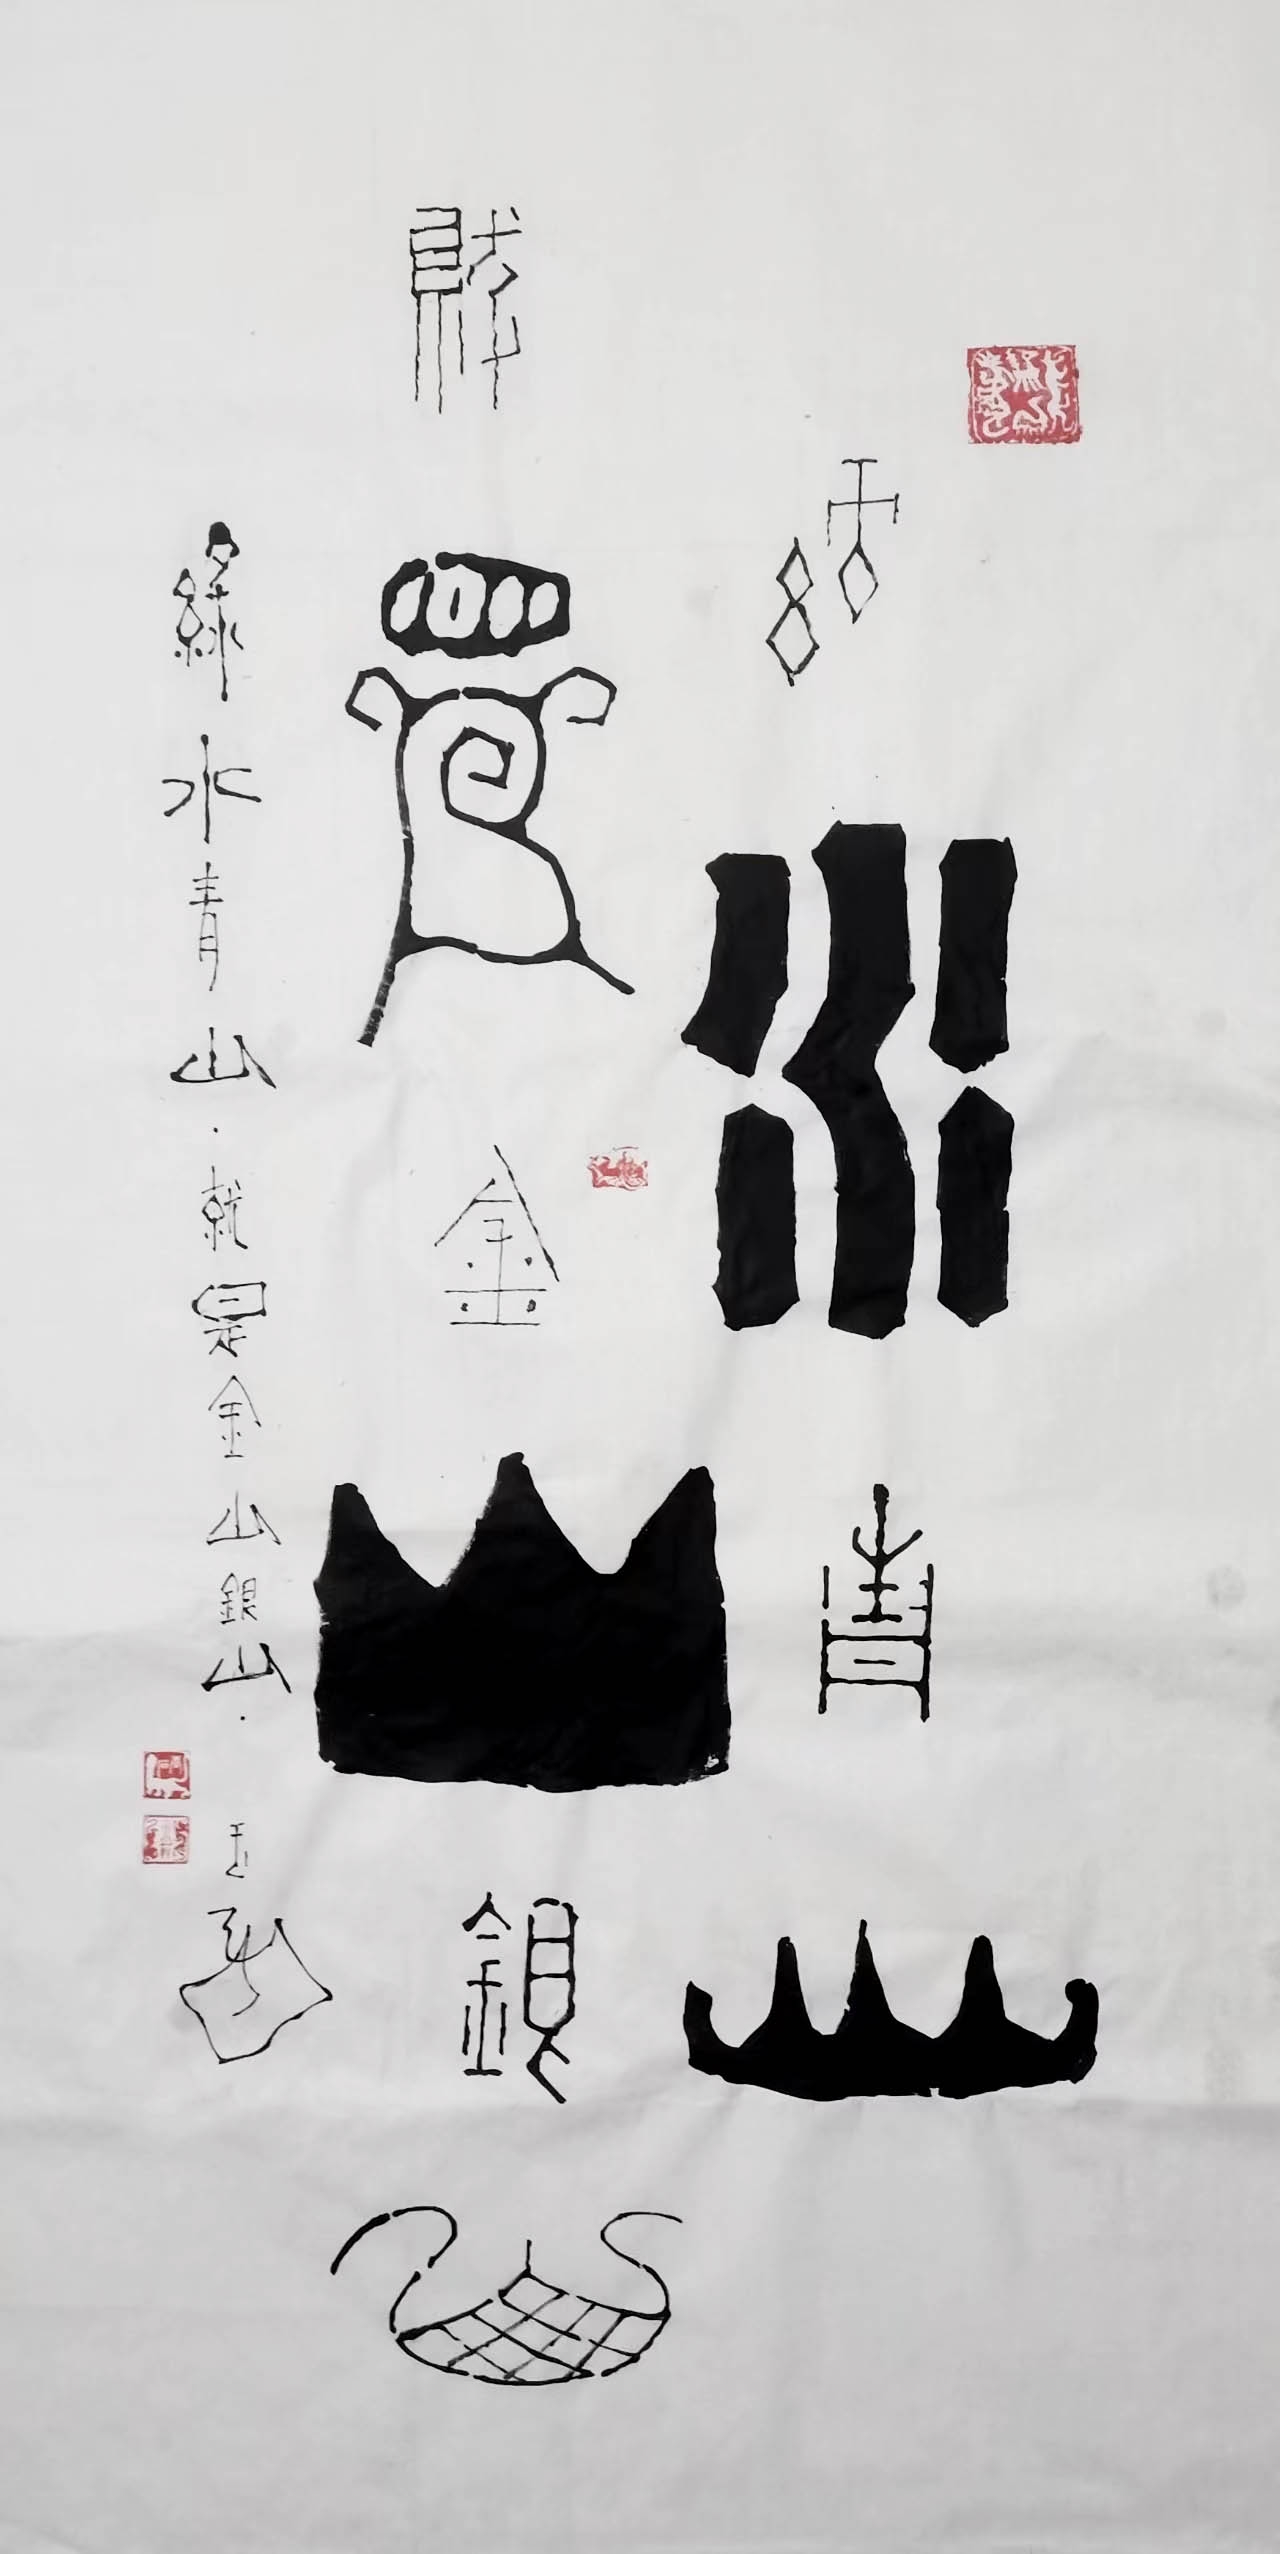 綠水青山
就是金山銀山
綠水青山·就是金山銀山·